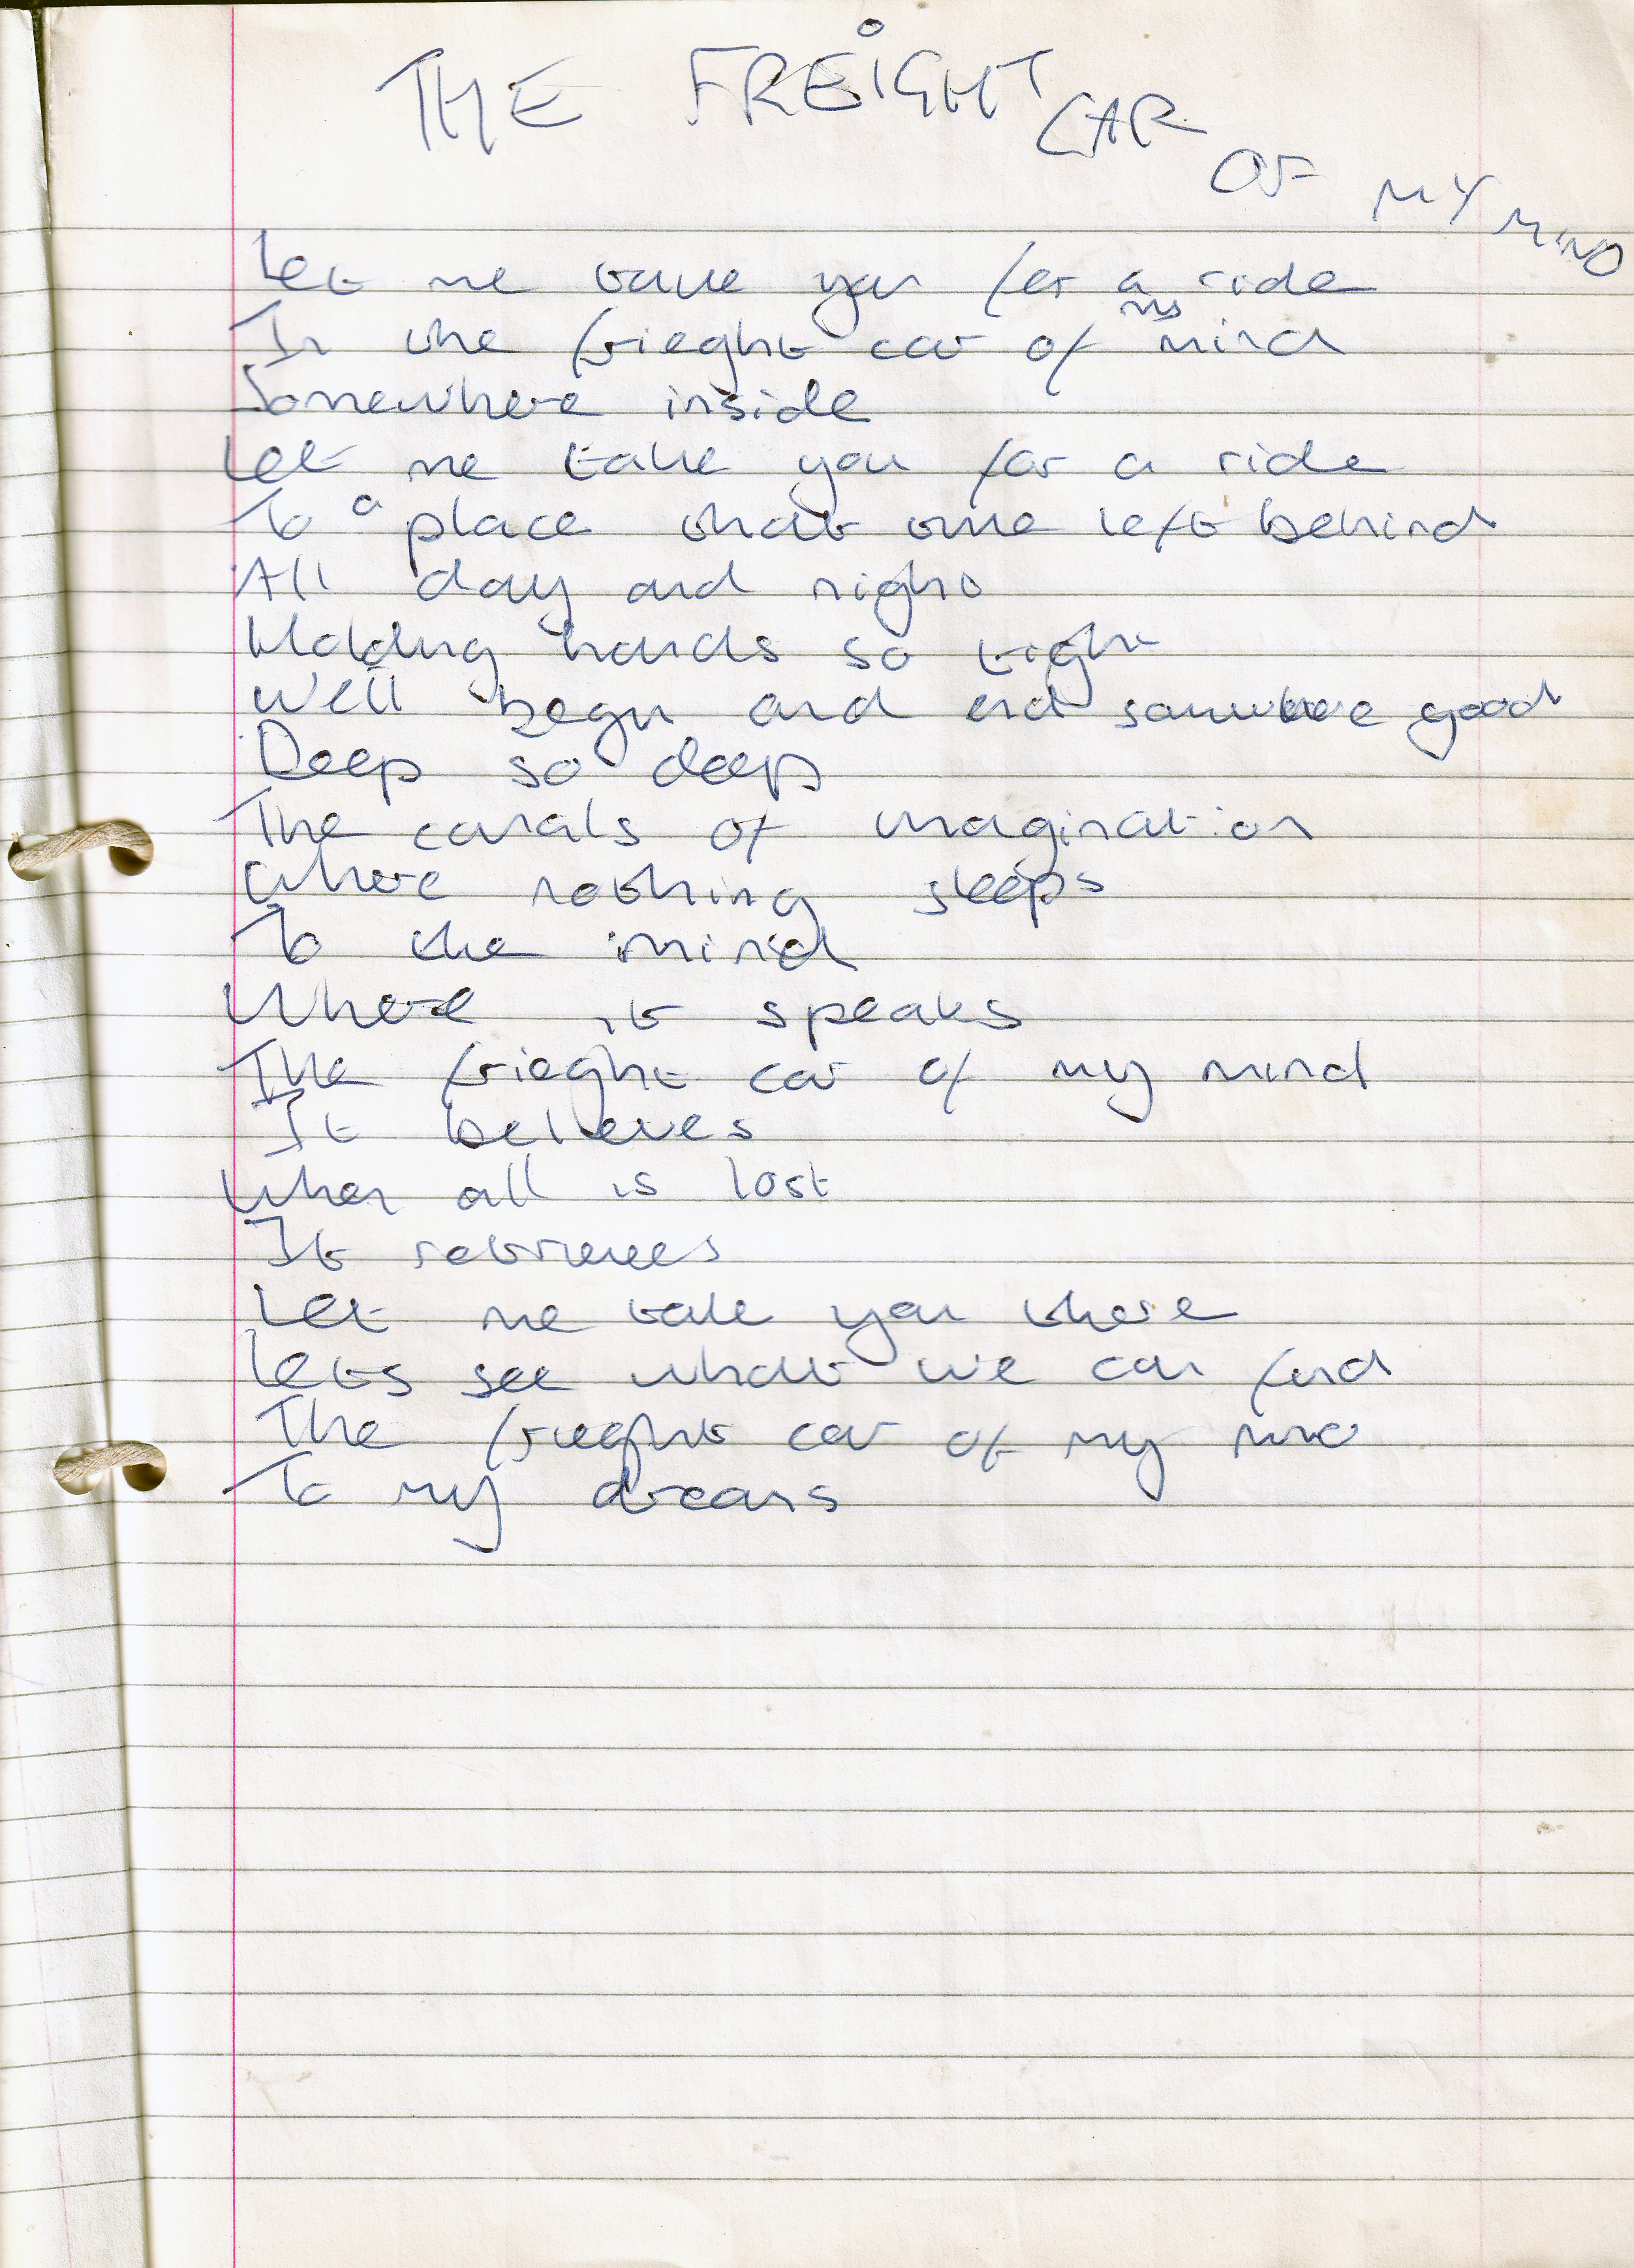 THE FREIGHT CAR OF MY MIND
Let me take you for a ride
In the frieght car of my mind
Somewhere inside
Let me take you for a ride
To a place that time left behind
All day and night
Holding hands so tight
We'll begin and end somwhere good
Deep so deep
The canals of imagination
Where nothing sleeps
To the mind
Where it speaks
The frieght car of my mind
It believes
When all is lost
It retrieves
Let me take you there
Lets see what we can find
The frieght car of my mind
To my dreams